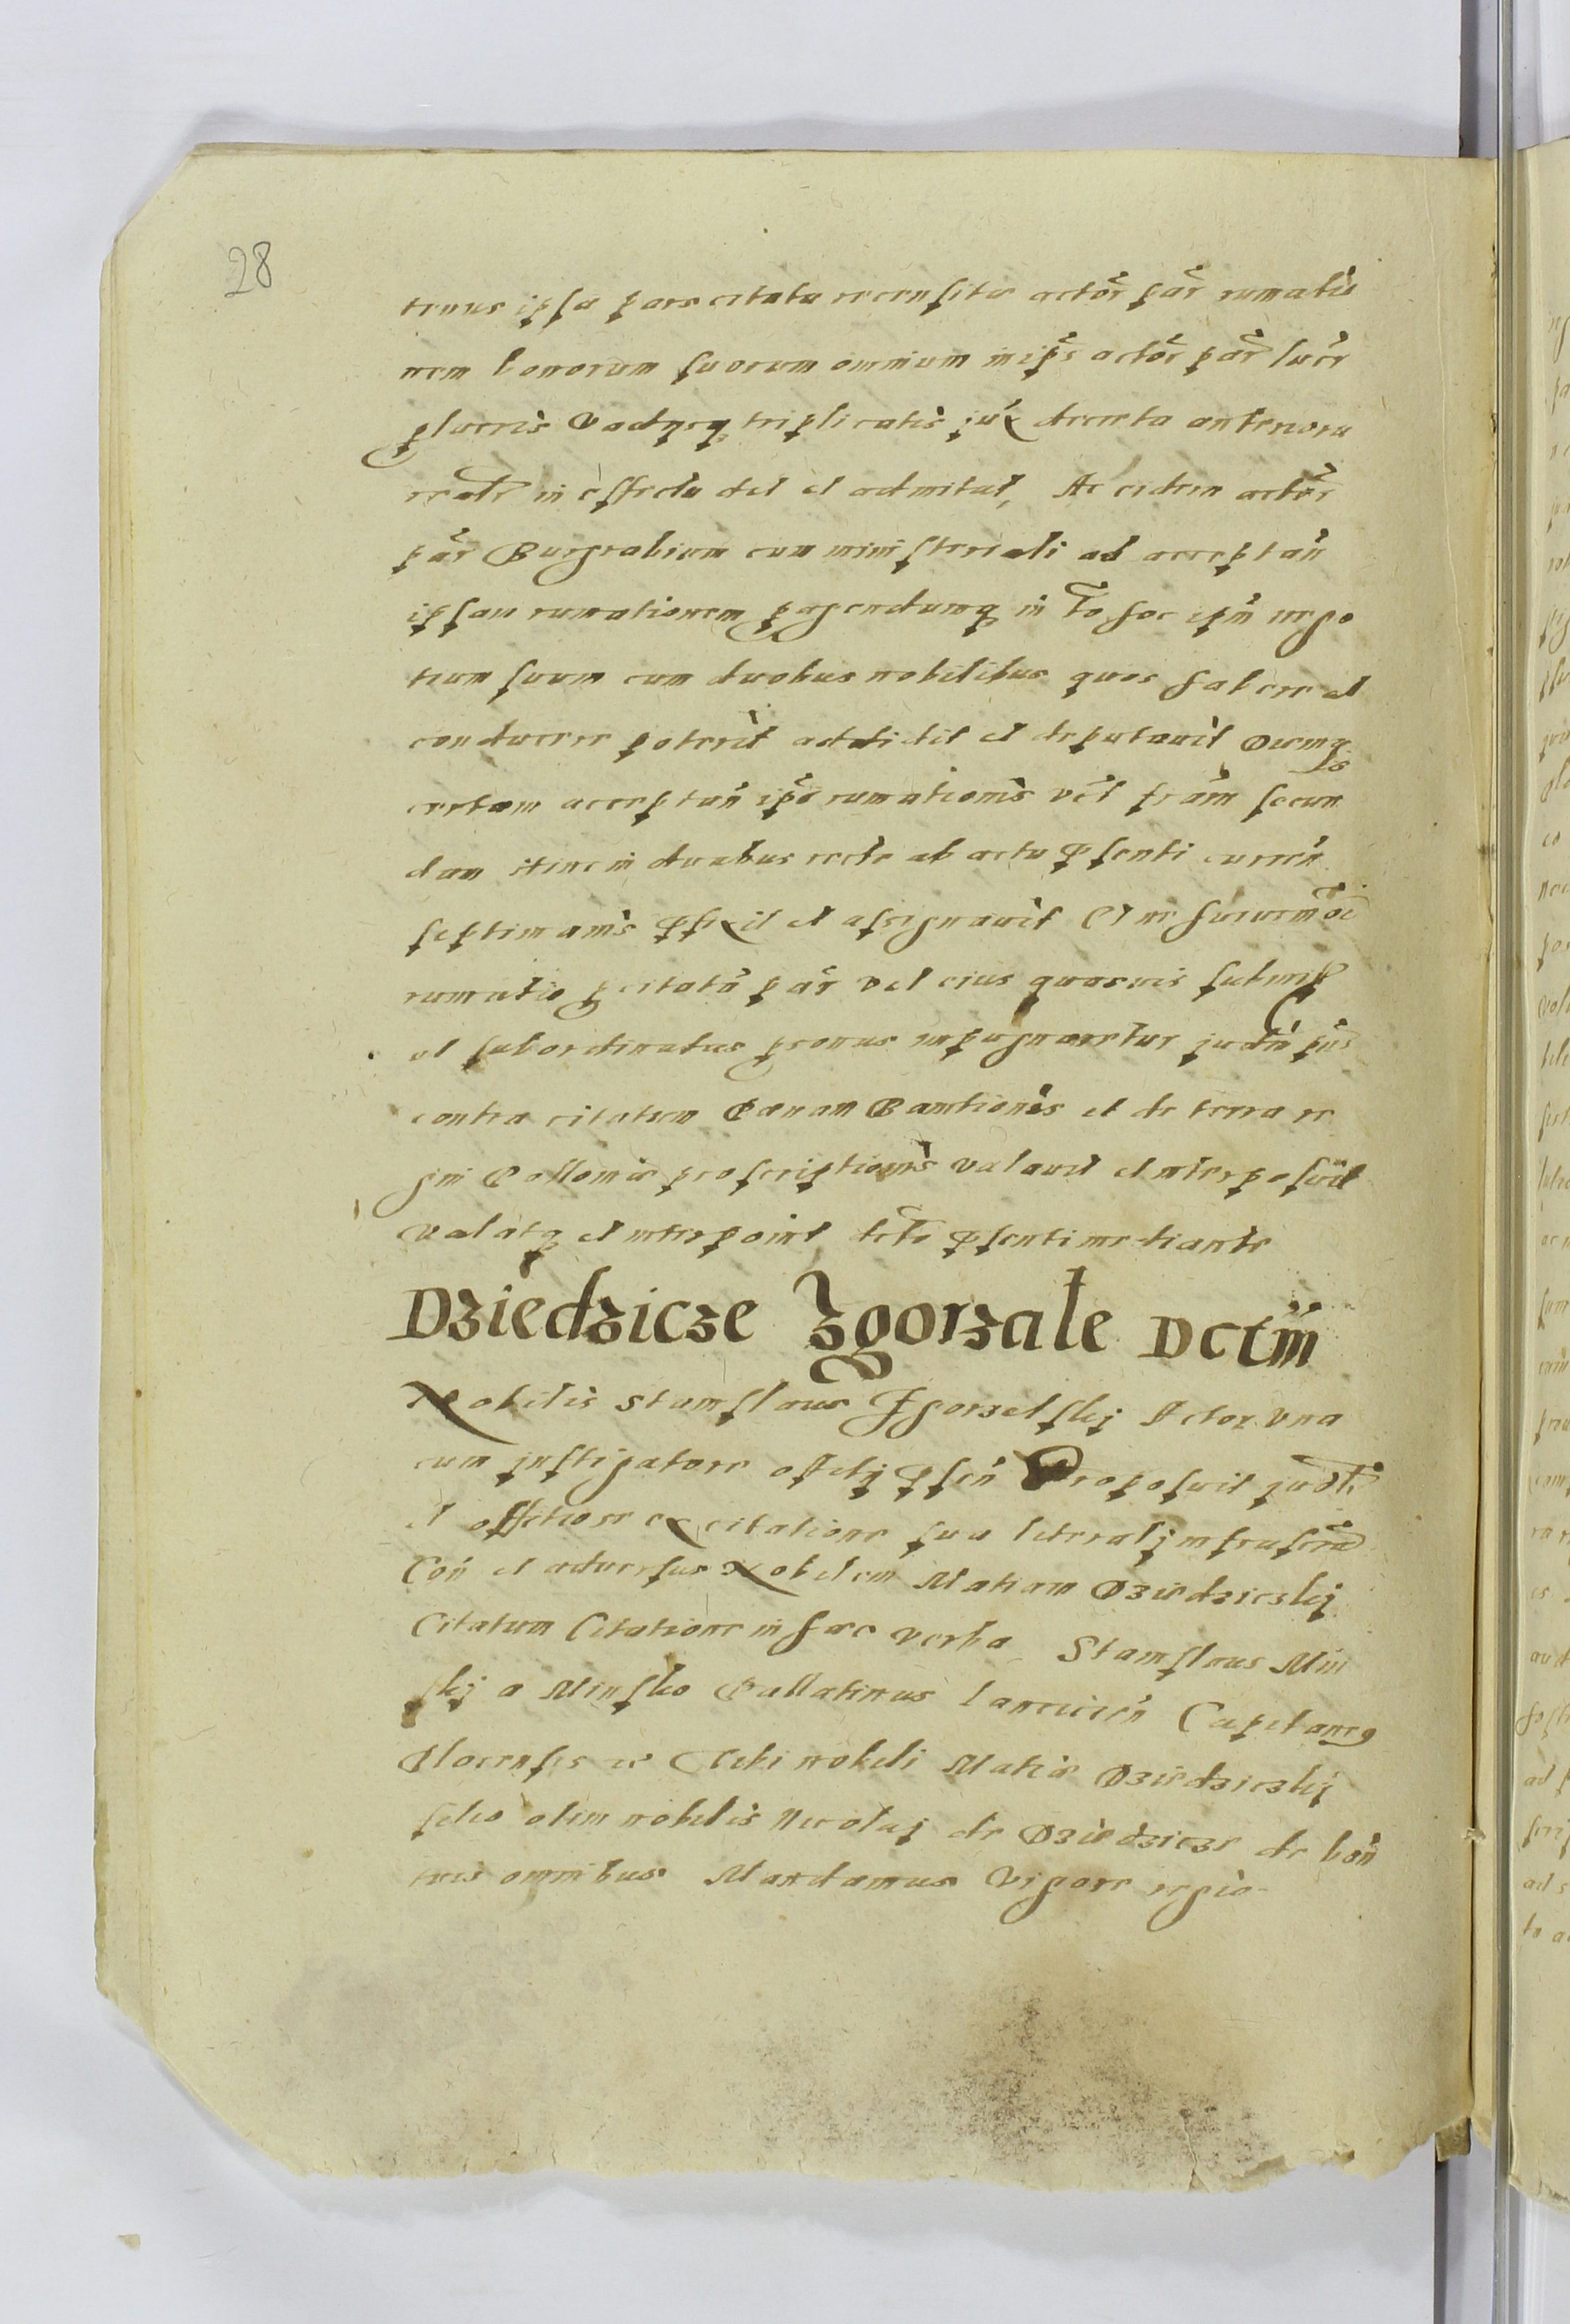 28
tenus ipsa pars citata recensita actor̃ par̃ rumatio
nem bonorum suorum omnium in ip̃s actor̃ par̃ lucr̃
plucris vadysq triplicatis iux̃ decreta anteriora
realr̃ in effectu det et admitat, Ac eidem actor̃
par̃ Burgrabium cum ministeriali ad acceptañ
ipsam rumationem pagendumq in to hoc ipm̃ nego
tium suum cum duobus nobilibus quos habere et
conducere poterit addidit et deputavit Diemq
certam acceptañ ip̃o rumationis vi͂t fram̃ secun
dam itinem duabus recte ab actu psenti curreñ
septimanis pfixit et assignavit Et ne huiusmõi
rumatio p citatã par̃ vel eius quasvis submiss
et subordinatas psonas impugnaretur judiũ pñs
contra citatum Pænam Bannitionis et de terra re
gni Polloniæ proscriptionis valavit et interposuit
valatq et interponit decto psenti mediante
Dziedzicze Zgorzałe Dctm̃
Nobilis Stanislaus Zgorzelskij Actor una
cum justigatore offitij pseñ Proposuit judti
et offitiose ex citatione sua literalj infrascrã
Coñ et adversus Nobilem Matiam Dziedziczkij
Citatum Citatione in hæc verba Stanislaus Min
skij a Minsko Pallatinus Lanciciẽn Capitaneg
Plocensis et Tibi nobili Matiæ Dziedziczkij
filio olim nobilis Nicolaj de Dziedzicze de boñ
tuis omnibus Mandamus Vigore regio-